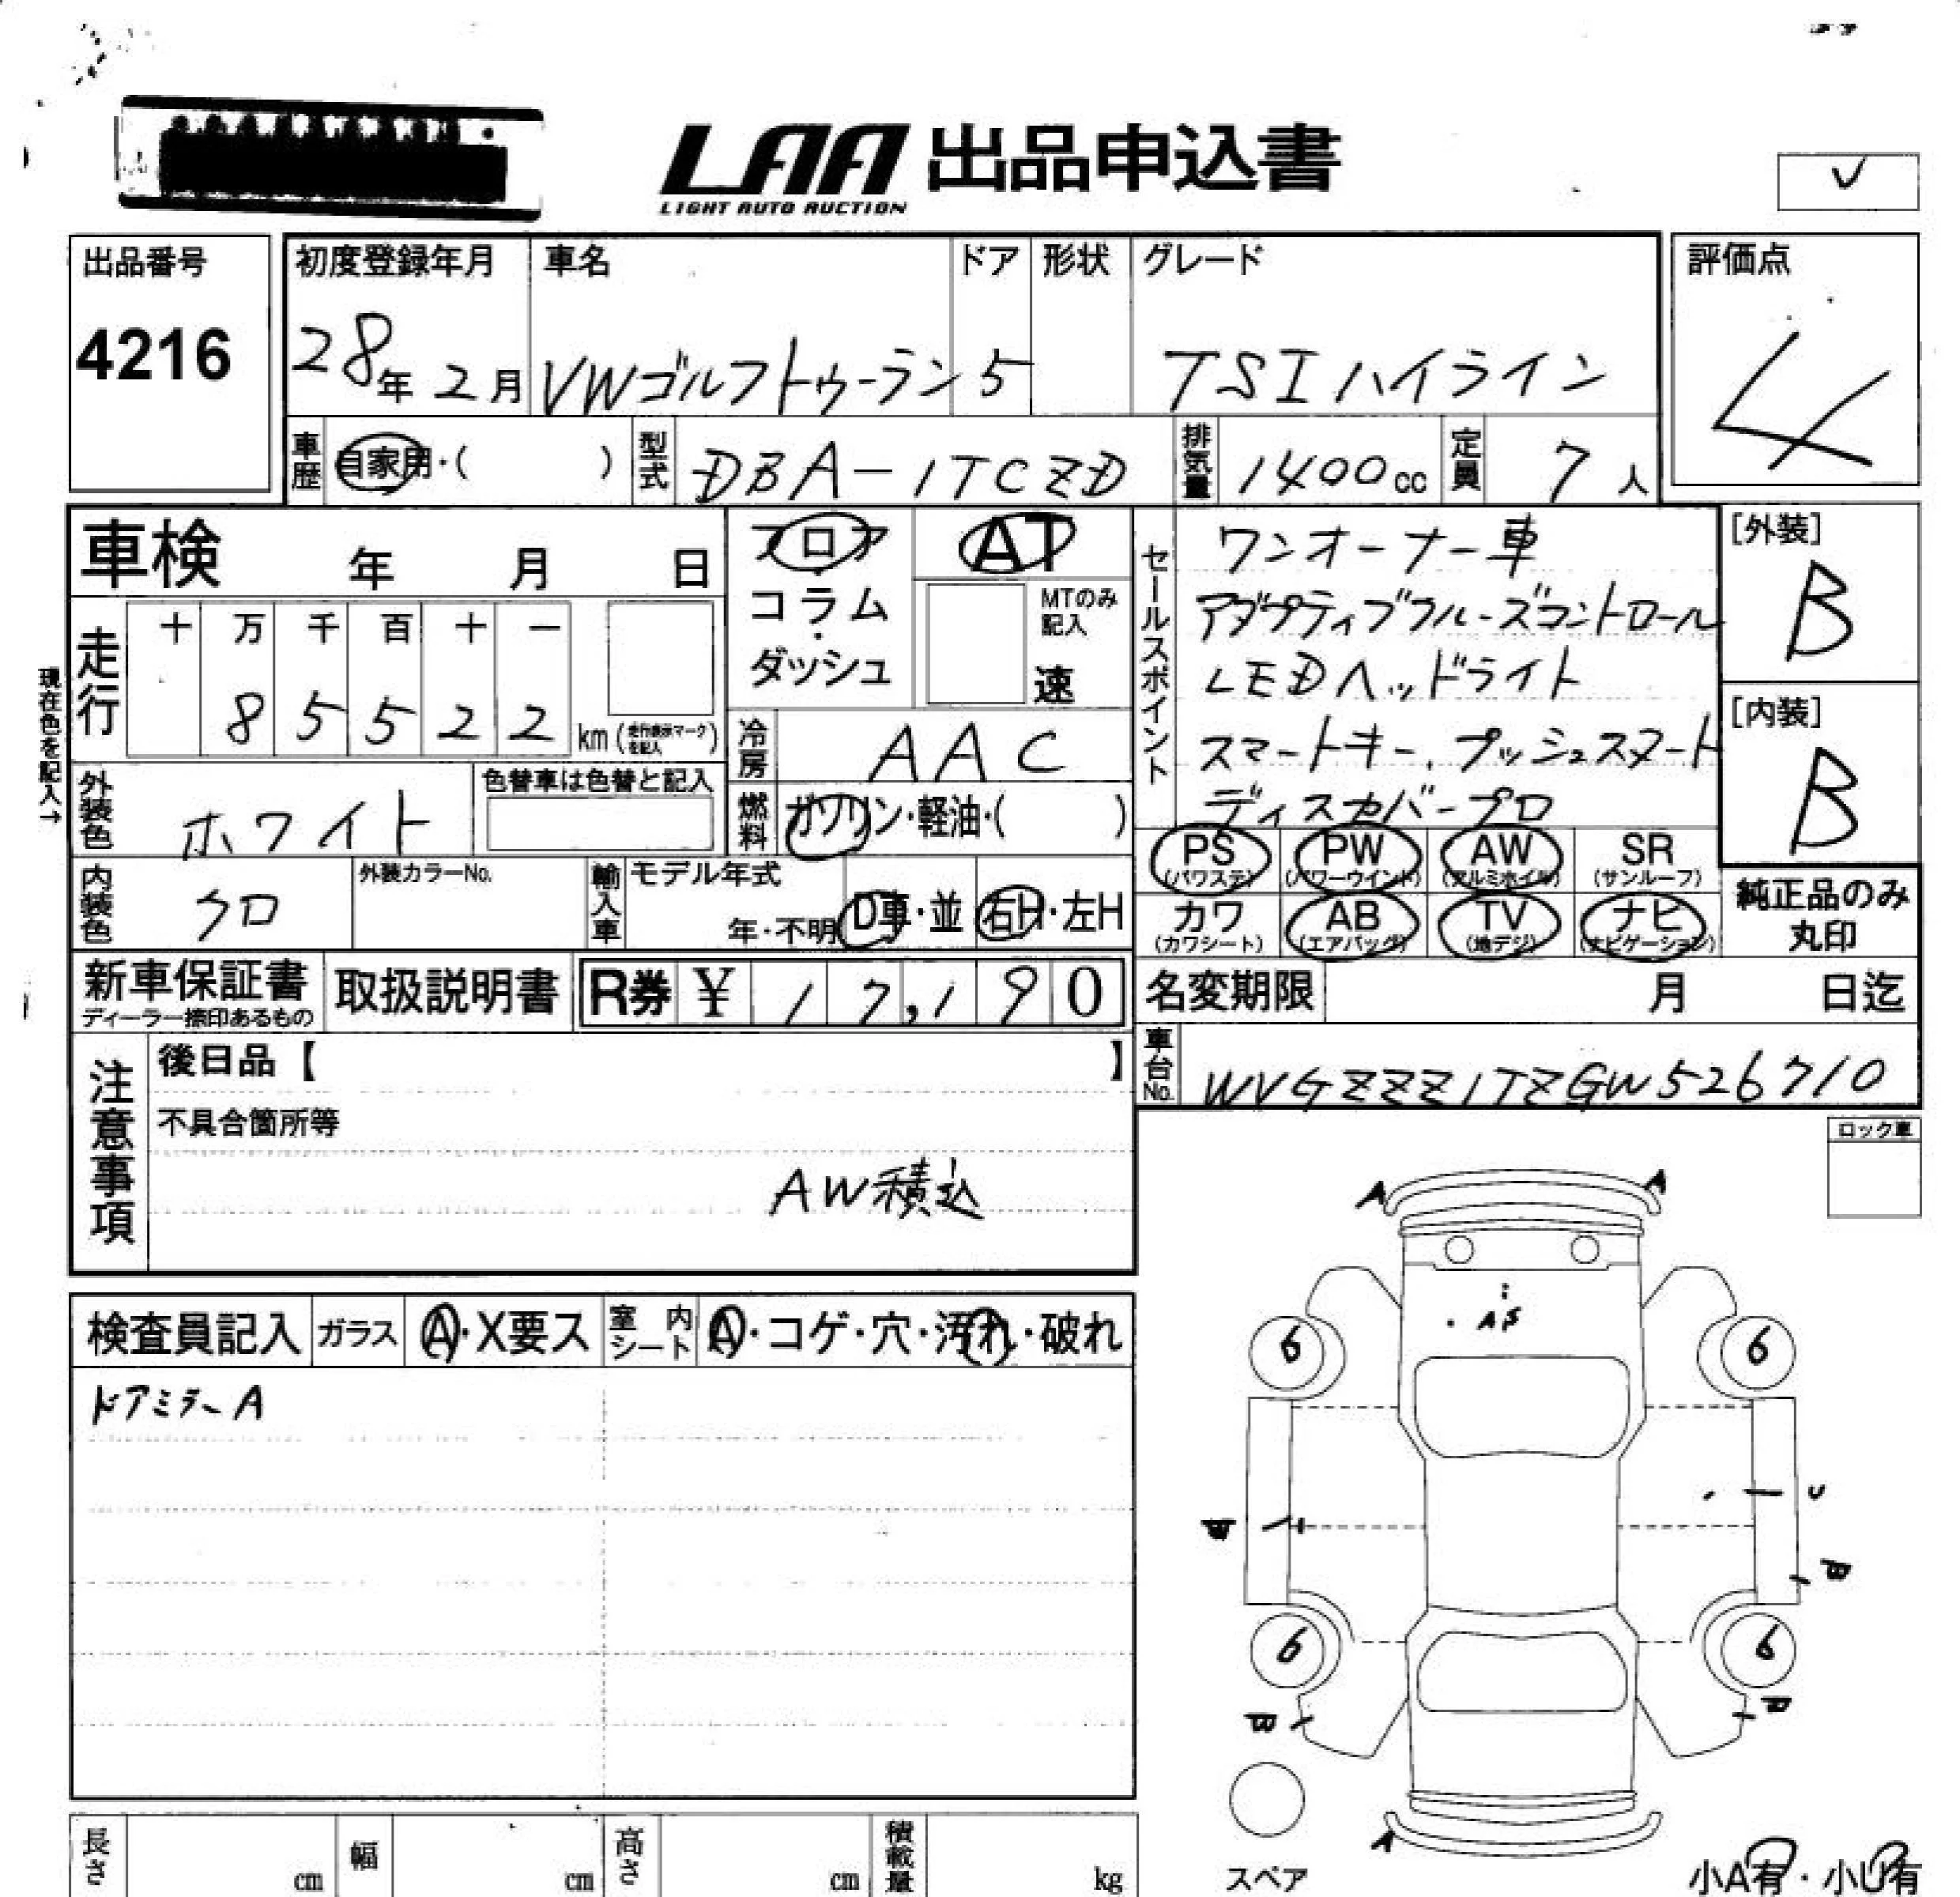 LAA 出品申込書
LIGHT AUTO AUCTION
✓
出品番号
4216
初度登録年月
28年 2月
車名
VWゴルフトゥーラン
ドア
5
形状
グレード
TSIハイライン
評価点
4
車歴
自家用・( )
型式
DBA-1TCZD
排気量
1400cc
定員
7人
車検 年 月 日
フロア
コラム
・
ダッシュ
AT
MTのみ
記入
速
セールスポイント
ワンオーナー車
アダプティブクルーズコントロール
LEDヘッドライト
スマートキー、プッシュスタート
ディスカバープロ
[外装]
B
[内装]
B
現在色を記入→
走行
十 万 千 百 十 一
8 5 5 2 2 km(走行表示マークを記入)
冷房
AAC
外装色
ホワイト
色替車は色替と記入
燃料
ガソリン・軽油・( )
内装色
クロ
外装カラーNo.
輸入車
モデル年式
年・不明
D車・並
右H・左H
PS
(パワステ)
PW
(パワーウインド)
AW
(アルミホイル)
SR
(サンルーフ)
カワ
(カワシート)
AB
(エアバッグ)
TV
(地デジ)
ナビ
(ナビゲーション)
純正品のみ
丸印
新車保証書
ディーラー捺印あるもの
取扱説明書
R券 ¥ 17,190
名変期限 月 日迄
車台No.
WVGZZZ1TZGW526710
注意事項
後日品【 】
不具合箇所等
AW積込
ロック車
検査員記入
ガラス
A・X要ス
室内シート
A・コゲ・穴・汚れ・破れ
ドアミラーA
A A
A S
6 6
U
B
B
6 6
B B
A
スペア
小A有・小U有
長さ cm
幅 cm
高さ cm
積載量 kg